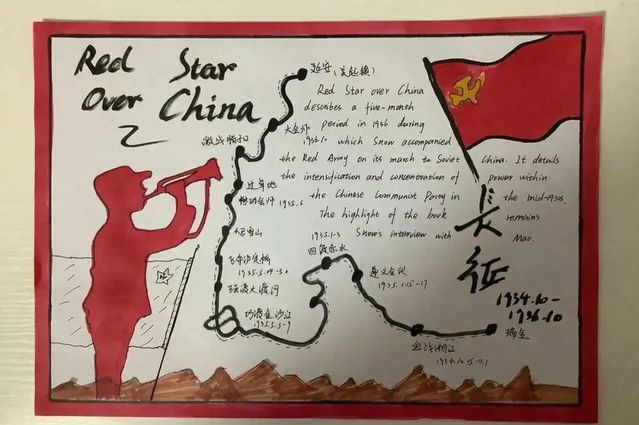 Red Star
Over China
延安(吴起镇)
Red Star over China
describes a five-month
period in 1936 during
which Snow accompanied
the Red Army on its mach to Soviet China. It details
the intensification and concentration of power within
the Chinese Communist Party in the mid-1930s.
The highlight of the book remains
Snow's interview with Mao.
大会师
1936.10
激战腊子口
过草地
1935.6
大雪山
飞夺泸定桥
强渡大渡河
巧渡金沙江
1935.5.3-9
1935.1-3
四渡赤水
遵义会议
1935.1.15-17
血战湘江
瑞金
长征
1934.10-
1936.10